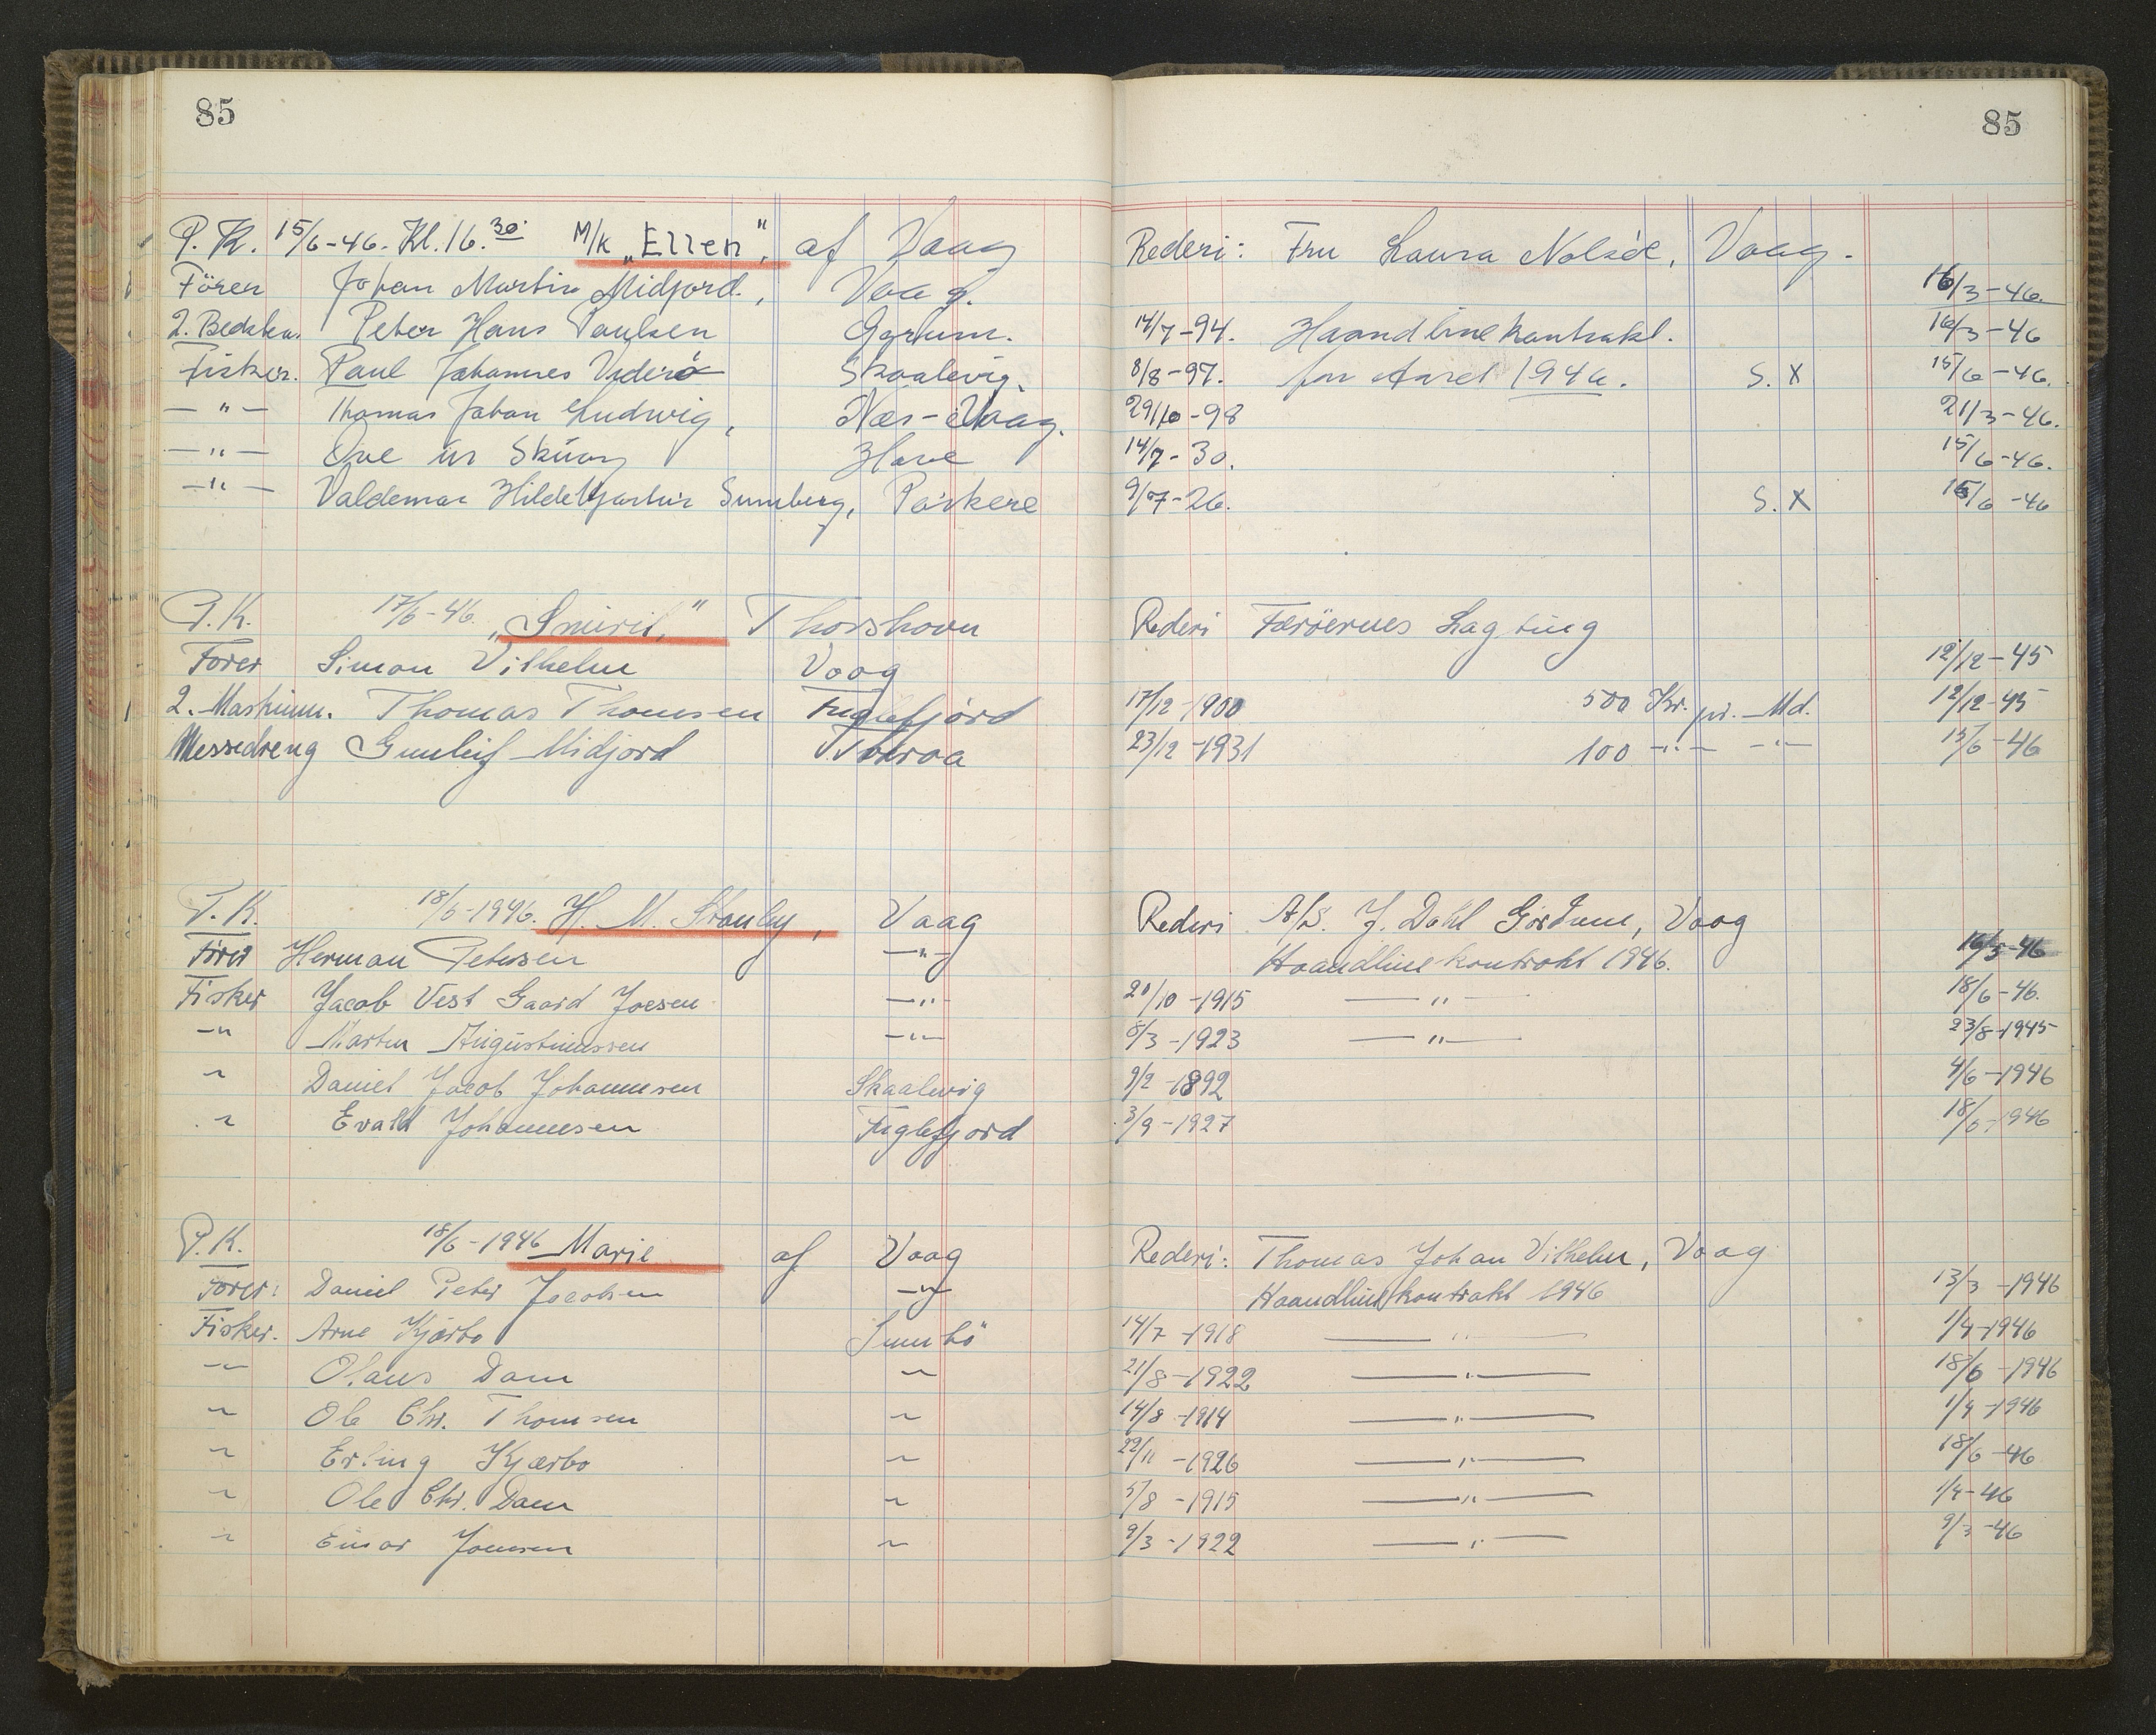 85
85
P. K. 15/6-46. Kl. 16.30 M/K „Ellen", af Vaag Rederi: Fru Laura Nolsöe, Vaag.
Förer Johan Martin Midjord, Vaag. 16/3-46.
2. Bedstm. Peter Hans Poulsen 14/7-94. Haandlinekontrakt. 16/3-46
Fisker. Paul Johannes Viderö Skaalevig. 8/8-97. for Aaret 1946. S. X 15/6-46.
-"- Thomas Johan Ludvig, Næs-Vaag. 29/10-98 21/3-46.
-"- Ove úr Skúvoy Hove 14/7-30. 15/6-46.
-"- Valdemar Hildebjartur Sumberg, Porkere 9/7-26. S. X 15/6-46
P.K. 17/6-46. „Smiril," Thorshavn Rederi Færöernes Lagting
Fører Simon Vilhelm Vaag 12/12-45
2. Maskinm. Thomas Thomsen Fuglefjord 17/12-1900 500 Kr. pr. Md. 12/12-45
Messedreng Gunleif Midjord Tveraa 23/12-1931 100 -"- -"- 15/6-46
P.K. 18/6-1946. H. M. Stanley, Vaag Rederi A/S. J. Dahl Gördum, Vaag
Förer Herman Petersen -"- Haandlinekontrakt 1946. 16/3-46
Fisker Jacob Vest Gaard Joesen -"- 20/10-1915 -"- 18/6-46.
-"- Martin Augustinussen -"- 8/3-1923 -"- 23/8-1945
" Daniel Jacob Johannesen Skaalevig 9/2-1892 4/6-1946
" Evald Johannesen Fuglefjord 3/9-1927 18/6-1946
P.K. 18/6-1946 Marie af Vaag Rederi: Thomas Johan Vilhelm, Vaag
Förer: Daniel Peter Jacobsen -"- Haandlinekontrakt 1946 13/3-1946
Fisker. Arne Kjærbo Sumbö 14/7-1918 -"- 1/4-1946
" Olaus Dam " 21/8-1922 -"- 18/6-1946
" Ole Chr. Thomsen " 14/8-1914 -"- 1/4-1946
" Erling Kjærbo " 22/11-1926 -"- 18/6-46
" Ole Chr. Dam " 5/8-1915 -"- 1/4-46
" Einar Joensen " 9/3-1922 -"- 9/3-46